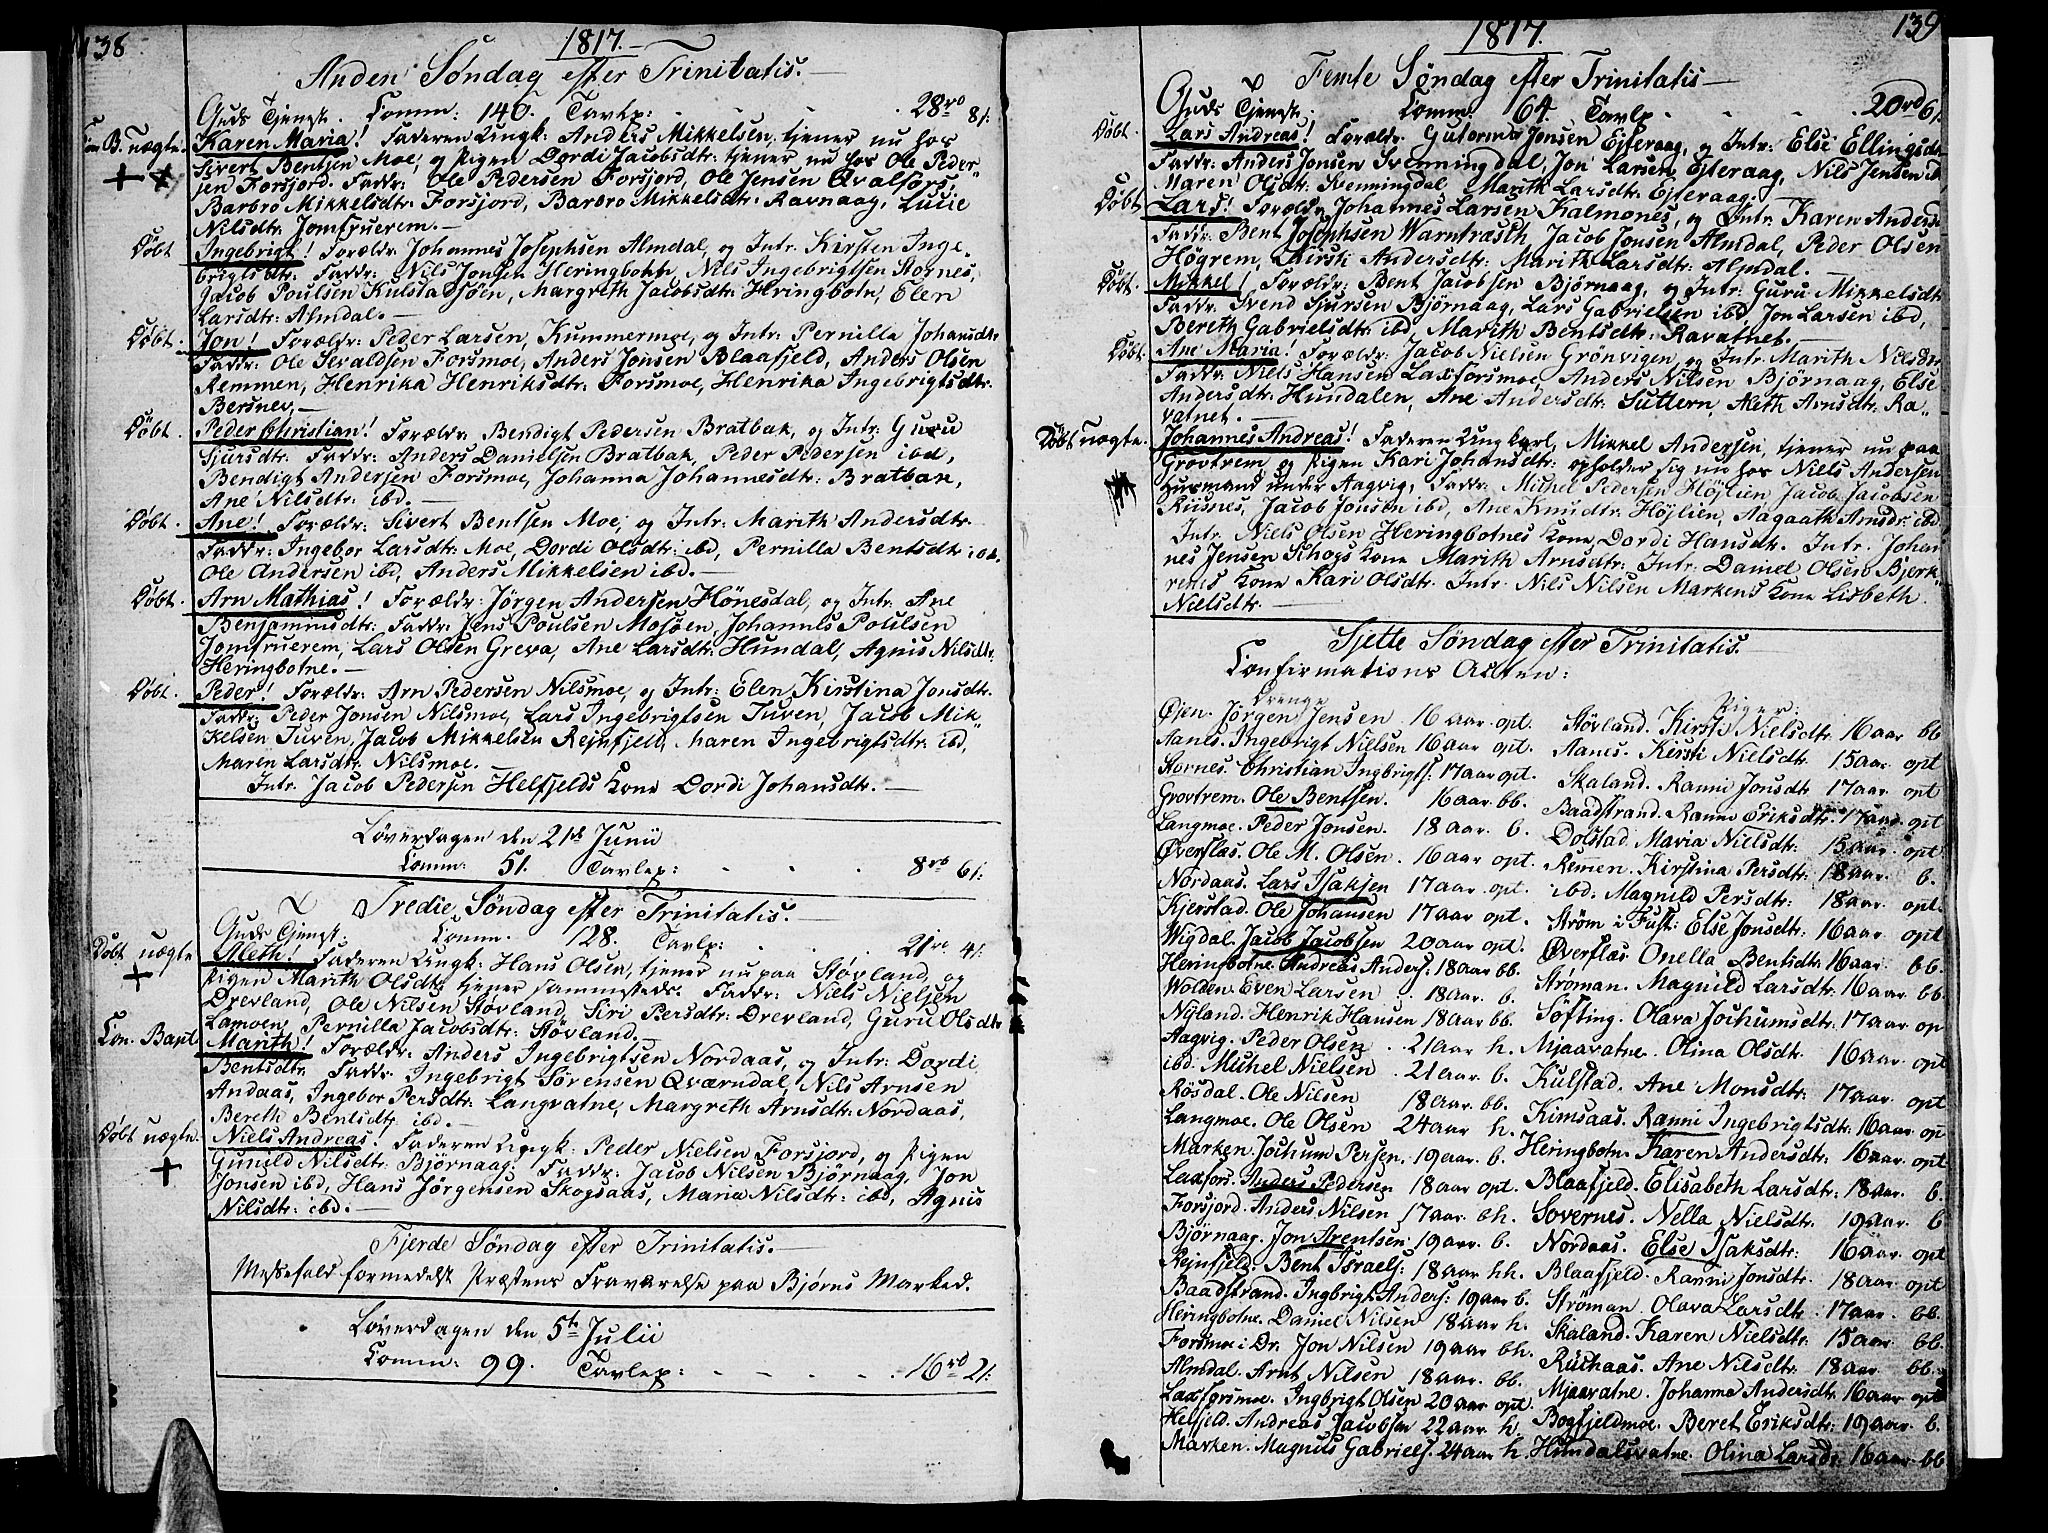 138
1817.
Anden Søndag efter Trinitatis.
Guds Tjenest. Comm: 140. Tavlep: 28 rd 8 s:
Con. B. nægte. Karen Maria! Faderen Ungk: Anders Mikkelsen, tjener nu hos
Sivert Bentsen Moe, og Pigen Dordi Jacobsdtr: tjener nu hos Ole Peder„
sen Forsjord. Faddr: Ole Pedersen Forsjord, Ole Jensen Qvalfors,
Barbro Mikkelsdtr: Forsjord, Barbro Mikkelsdtr: Ravnaag, Lucie
Nilsdtr: Jomfruerem.
Døbt Ingebrigt! Forældr: Johannes Josephsen Almdal, og Intr. Kirsten Inge
brigtsdtr: Faddr: Nils Jonsen Heringbotn, Nils Ingebrigtsen Stornes,
Jacob Poulsen Kulstadsjøen, Margreth Jacobsdtr: Heringbotn, Elen
Larsdtr: Almdal.
Døbt. Jon! Forældr: Peder Larsen, Kummermoe, og Intr: Pernilla Johansdtr
Faddr: Ole Sevaldsen Forsmoe, Anders Jonsen Blaafjeld, Anders Olsen
Remmen, Henrika Henriksdtr: Forsmoe, Henrika Ingebrigtsdtr:
Bersnev,
Døbt. Peder Christian! Forældr: Bendigt Pedersen Bratbak, og Intr: Guru
Sjursdtr: Faddr: Anders Danielsen Bratbak, Peder Pedersen ibd,
Bendigt Andersen Forsmoe, Johanna Johannesdtr: Bratbak,
Ane Nilsdtr: ibd.
Døbt. Ane! Forældr: Sivert Bentsen Moe, og Intr: Marith Andersdtr.
Faddr: Ingebor Larsdtr: Moe, Dordi Olsdtr: ibd, Pernilla Bentsdtr: ibd.
Ole Andersen ibd, Anders Mikkelsen ibd.
Døbt. Arn Mathias! Forældr: Jörgen Andersen Hönesdal, og Intr: Ane
Benjaminsdtr: Faddr: Jens Poulsen Mosöen, Johannes Poulsen
Jomfruerem, Lars Olsen Greva, Ane Larsdtr: Hundal, Agnis Nilsdtr:
Heringbotne.
Døbt. Peder! Forældr: Arn Pedersen Nilsmoe, og Intr: Elen Kirstina Jonsdtr.
Faddr: Peder Jonsen Nilsmoe, Lars Ingebrigtsen Tuven, Jacob Mik„
kelsen Tuven, Jacob Mikkelsen Rejnfjeld, Maren Ingebrigtsdtr: ibd,
Maren Larsdtr: Nilsmoe.
Intr. Jacob Pedersen Helfjelds Kone Dordi Johansdtr.
Löverdagen den 21de Junii
Comm: 51. Tavlep: 8 rd 6 s:
Tredie Søndag efter Trinitatis.
Guds Tjenest. Comm. 128. Tavlp: 21 rd 4 s:
Døbt nægte Aleth! Faderen Ungk: Hans Olsen, tjener nu paa Støvland, og
Pigen Marith Olsdtr: tjener sammesteds. Faddr: Niels Nielsen
Drevland, Ole Nilsen Støvland, Siri Persdtr: Drevland, Guru Olsdtr
Lamoen, Pernilla Jacobsdtr: Støvland.
Con. Bapt Marith! Forældr: Anders Ingebrigtsen Nordaas, og Intr: Dordi
Bentsdtr. Faddr: Ingebrigt Sörensen Qværndal, Nils Arnsen
Andaas, Ingebor Persdtr: Langvatne, Margreth Arnsdtr: Nordaas,
Bereth Bentsdtr: ibd.
Døbt nægte. Niels Andreas! Faderen Ungk: Peder Nielsen Forsjord, og Pigen
Gunild Nilsdtr: Björnaag: Faddr: Jacob Nilsen Björnaag, Jon
Jonsen ibd, Hans Jörgensen Skogsaas, Maria Nilsdtr: ibd, Agnis
Nilsdtr: ibd.
Fjerde Søndag efter Trinitatis.
Messefald formedelst Præstens Fraværelse paa Bjørns Marked.
Löverdagen den 5te Julii
Comm: 99. Tavlep: 16 rd 2 s:
139
1817.
Femte Søndag efter Trinitatis
Guds Tjenest: Comm: 64. Tavlp 20 rd 6 s
Døbt. Lars Andreas! Forældr: Gutorm Jonsen Ejteraag, og Intr: Else Ellingsdtr
Faddr: Anders Jonsen Svenningdal, Jon Larsen Ejteraag, Nils Jensen ib
Maren Olsdtr: Svenningdal, Marith Larsdtr: Ejteraag.
Døbt Lars! Forældr: Johannes Larsen Kalmones, og Intr. Karen Andersd
Faddr: Bent Josephsen Warntræsth, Jacob Jonsen Almdal, Peder Olsen
Högrem, Kirsti Andersdtr: Marith Larsdtr: Almdal.
Døbt. Mikkel! Forældr: Bent Jacobsen Björnaag, og Intr: Guru Mikkelsdtr
Faddr: Svend Sjursen Björnaag, Lars Gabrielsen ibd, Jon Larsen ibd,
Bereth Gabrielsdtr: ibd, Marith Bentsdtr: Ravatnet.
Døbt. Ane Maria! Forældr: Jacob Nielsen Grönvigen, og Intr: Marith Nilsdtr
Faddr: Niels Hansen Laxforsmoe, Anders Nilsen Björnaag, Else
Andersdtr: Hundalen, Ane Andersdtr: Suttern, Aleth Arnsdtr: Ra„
vatnet.
Døbt nægte. Johannes Andreas! Faderen Ungkarl, Mikkel Andersen, tjener nu paa
Grovtrem, og Pigen Kari Johansdtr: opholder sig nu hos Niels Andersen
Huusmand under Aagvig, Faddr: Michel Pedersen Höjlien, Jacob Jacobsen
Riisnes, Jacob Jonsen ibd, Ane Knudtr: Höjlien, Aagaath Arnsdr: ibd
Intr. Niels Olsen Heringbotnes Kone, Dordi Hansdtr. Intr. Johan
nes Jensen Schogs Kone Marith Arnsdtr: Intr: Daniel Olsen Bjerk„
renis Kone Kari Olsdtr. Intr. Nils Nilsen Markens Kone Lisbeth
Nielsdtr.
Sjette Søndag efter Trinitatis.
Confirmations Acten:
Drenge
Öjen. Jörgen Jensen 16 aar opt.
Aanes. Ingebrigt Nielsen 16 aar opt.
Stornes. Christian Ingbrigts: 17 aar opt.
Grovtrem. Ole Bentsen. 16 aar bb.
Langmoe. Peder Jonsen. 18 aar. b.
Øverflas. Ole M. Olsen. 16 aar opt.
Nordaas. Lars Isaksen 17 aar opt.
Kjerstad. Ole Johansen 17 aar opt.
Wigdal. Jacob Jacobsen 20 aar opt.
Heringbotne. Andreas Anders: 18 aar bb.
Wolden. Even Larsen 18 aar. b.
Nyland. Henrik Hansen 18 aar bb.
Aagvig. Peder Olsen 21 aar h.
ibd. Michel Nielsen 21 aar. b.
Røsdal. Ole Nilsen 18 aar. bb.
Langmoe. Ole Olsen 24 aar h.
Marken. Jochum Persen. 19 aar. b.
Laxfors. Anders Pedersen 18 aar opt.
Forsjord. Anders Nilsen 17 aar. bh.
Björnaag. Jon Arentsen 19 aar. b.
Rejnfjeld. Bent Israels: 18 aar hh.
Baadstrand. Ingbrigt Anders: 19 aar b.
Heringbotne. Daniel Nilsen 18 aar h.
Forsmoe i Dr. Jon Nilsen 19 aar bh.
Almdal. Arnt Nilsen 18 aar. bb.
Laxforsmoe. Ingbrigt Olsen 20 aar opt.
Helfjeld. Andreas Jacobsen 22 aar h.
Marken. Magnus Gabriels. 24 aar h
Piger:
Støvland. Kirsti Nielsdtr: 16 aar bb
Aanes. Kirsti Nielsdtr. 15 aar opt
Skaland. Ranni Jonsdtr 17 aar opt
Baadstrand. Ranni Eriksdtr: 17 aar opt
Dolstad. Maria Nielsdtr: 15 aar. opt
Rem̄en. Kirstina Persdtr: 18 aar. b.
ibd. Magnild Persdtr: 18 aar. opt.
Ström i Fust: Else Jonsdtr: 16 aar opt
Øverflas Onella Bentsdtr: 16 aar. bb.
Ströman. Magnild Larsdtr: 16 aar bb
Søfting. Olava Jochumsdtr. 17 aar op
Mjaavatne. Olina Olsdtr. 16 aar opt
Kulstad. Ane Monsdtr: 17 aar. opt
Kimsaas. Ranni Ingebrigtsdtr: 16 aar op
Heringbotn. Karen Andersdtr: 16 aar. opt
Blaafjeld. Elisabeth Larsdtr: 18 aar. b.
Sovernes. Nella Nielsdtr: 19 aar b
Nordaas. Else Isaksdtr: 16 aar opt
Blaafjeld. Ranni Jonsdtr. 18 aar opt
Ströman. Olava Larsdtr: 17 aar. bb.
Skaland. Karen Nielsdtr: 15 aar bb.
Ruchaas. Ane Nilsdtr. 18 aar bb.
Mjaavatne. Johanna Andersdtr. 16 aar opt
Bogfjeldmoe. Beret Eriksdtr: 19 aar. b.
Hundalsvatne. Olina Larsdr: 16 aar bb